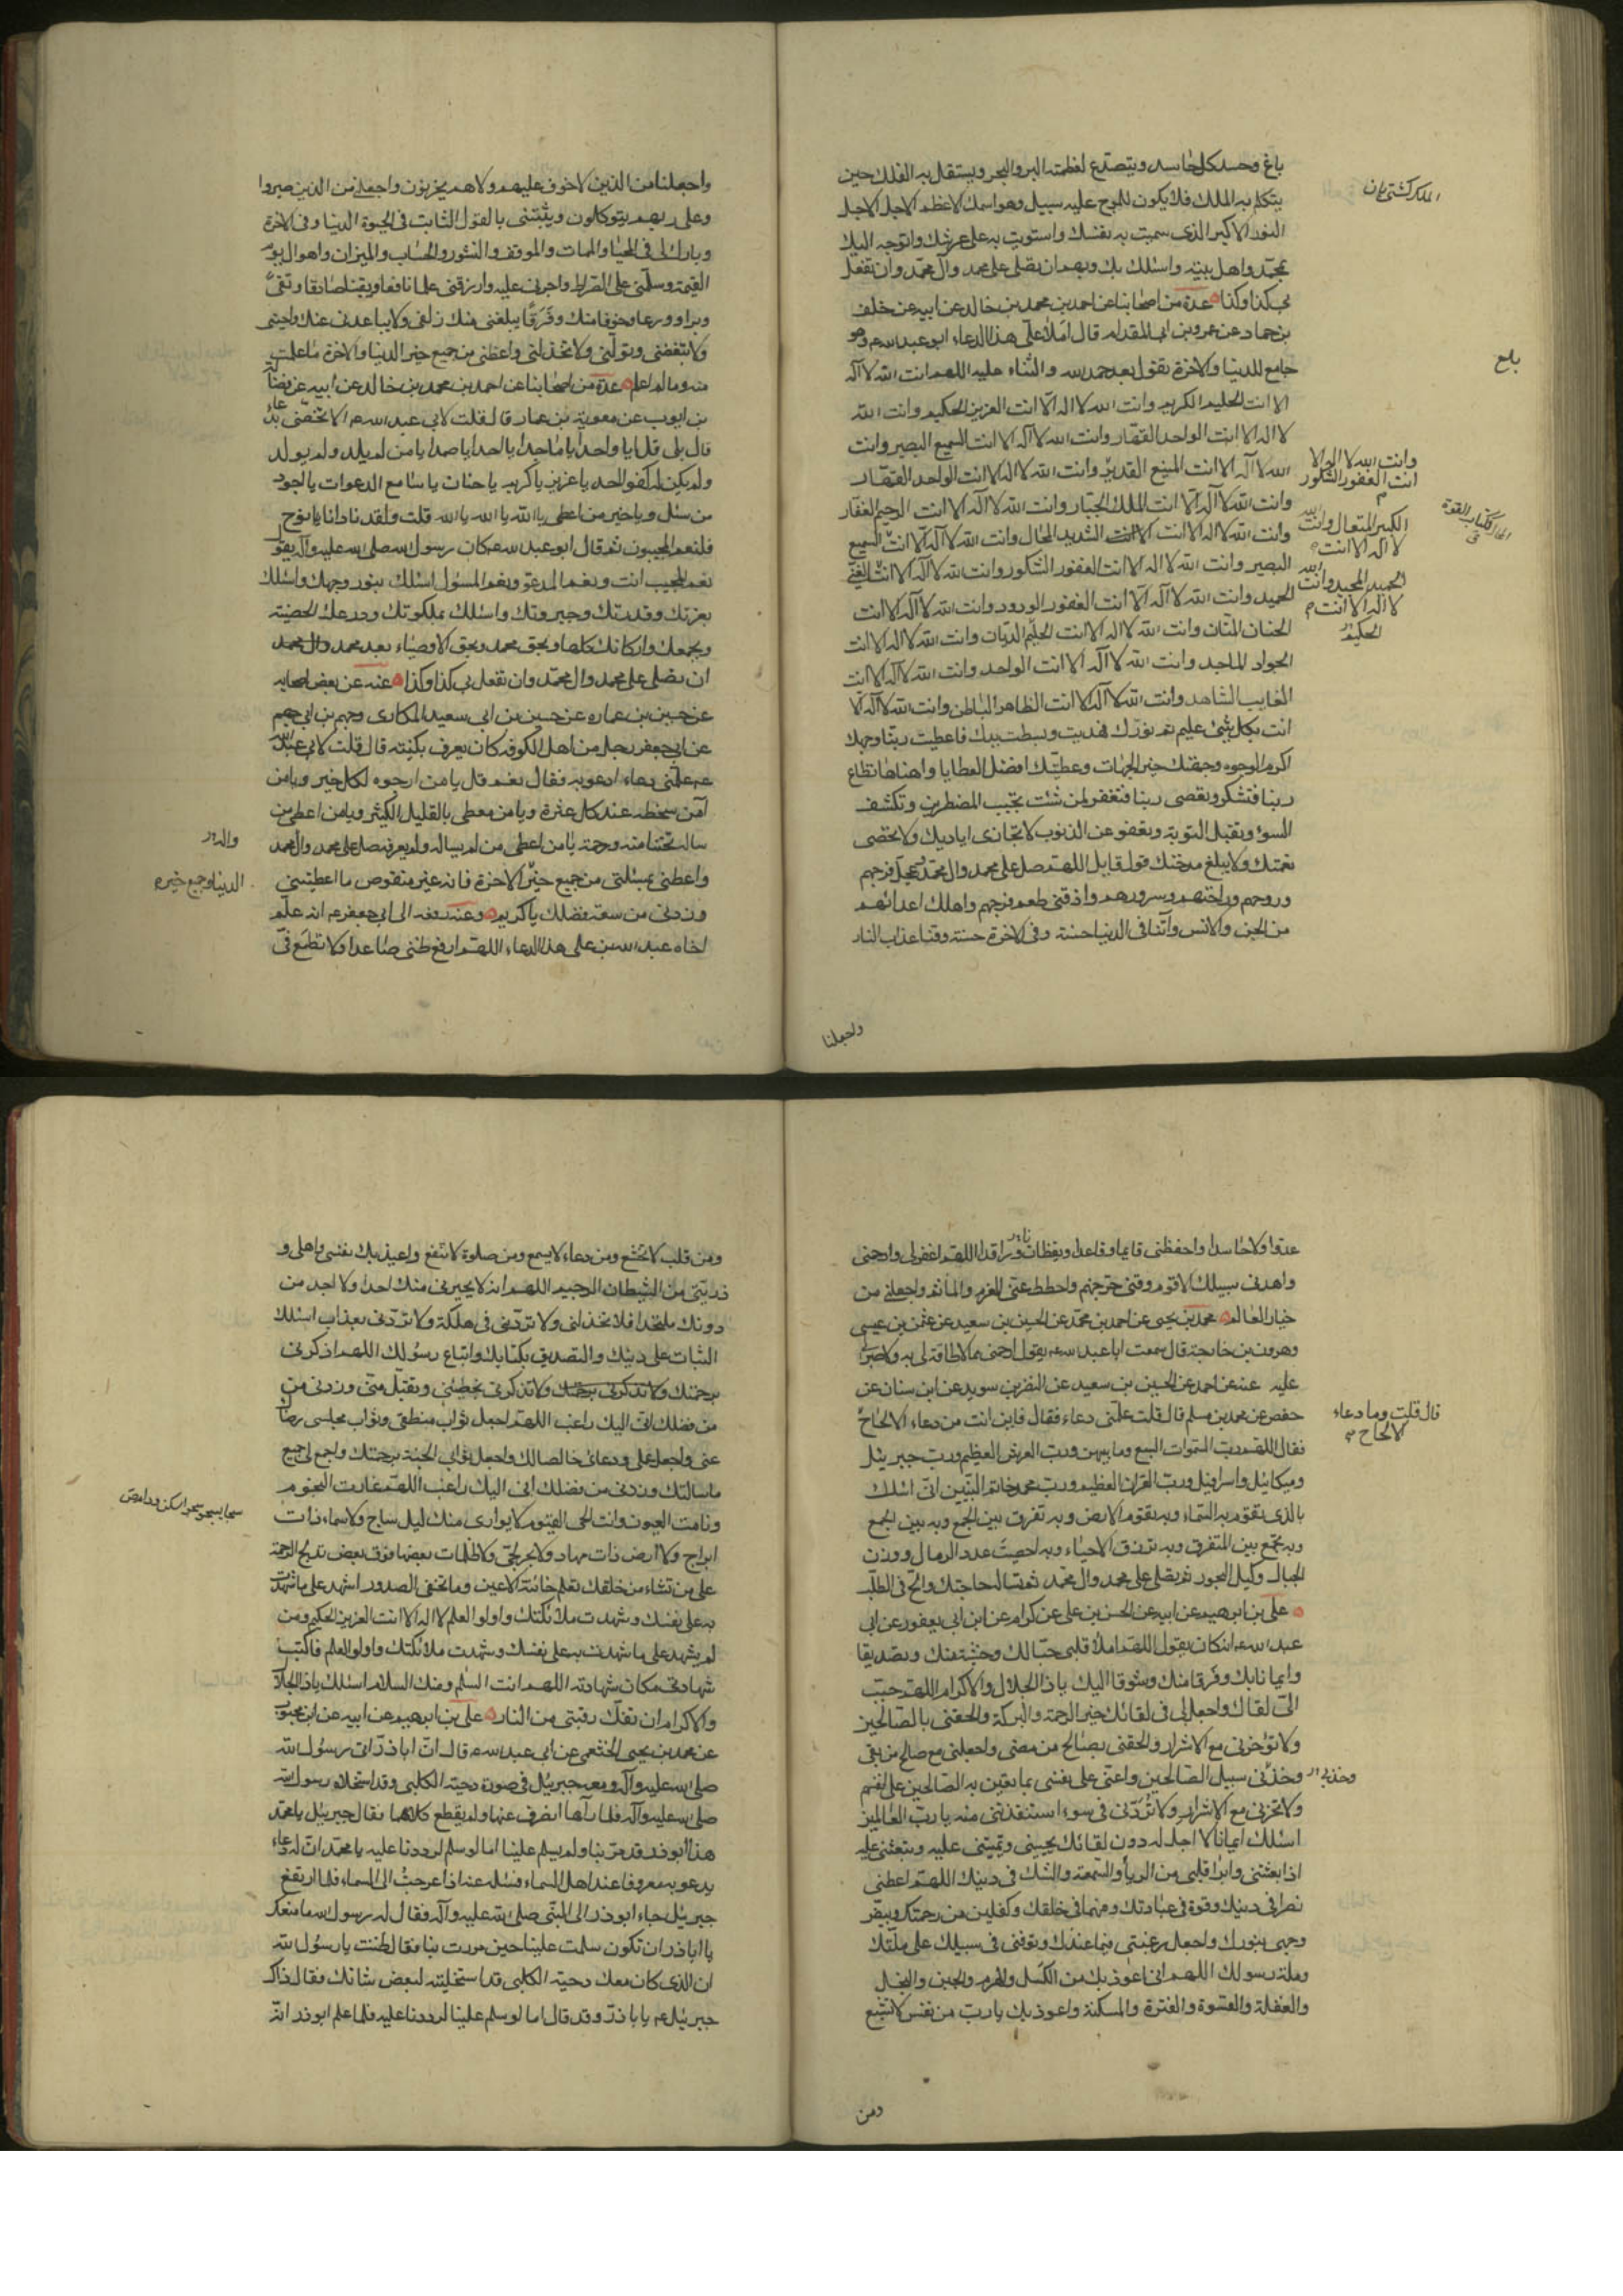 باغ وحسد كل حاسد ويتصدع لعظمته البر والبحر ويستقل به الفلك حين
يتكلم به الملك فلا يكون للموج عليه سبيل وهو اسمك الاعظم الاجل الاجل
النور الاكبر الذى سميت به نفسك واستويت به على عرشك واتوجه اليك
بمحمد واهل بيته واسئلك بك وبهم ان تصلى على محمد وآل محمد وان تفعل
بى كذا وكذا عدة من اصحابنا عن احمد بن محمد بن خالد عن ابيه عن خلف
بن حماد عن عمرو بن ابى المقدام قال املا على هذا الدعاء ابو عبد الله ع وهو
جامع للدنيا والاخرة تقول بعد حمد الله والثناء عليه اللهم انت الله لا آله
الا انت الحليم الكريم وانت الله لا اله الا انت العزيز الحكيم وانت الله
لا اله الا انت الواحد القهار وانت الله لا آله الا انت السميع البصير وانت
الله لا آله الا انت المنيع القدير وانت الله لا اله الا انت الواحد القهار
وانت الله لا آله الا انت الملك الجبار وانت الله لا آله الا انت الرحيم الغفار
وانت الله لا اله الا انت الشديد المحال وانت الله لا آله الا انت السميع
البصير وانت الله لا اله الا انت الغفور الشكور وانت الله لا آله الا انت الغنى
الحميد وانت الله لا آله الا انت الغفور الودود وانت الله لا آله الا انت
الحنان المنان وانت الله لا اله الا انت الحليم الديان وانت الله لا اله الا انت
الجواد الماجد وانت الله لا آله الا انت الواحد وانت الله لا آله الا انت
الغايب الشاهد وانت الله لا آله الا انت الظاهر الباطن وانت الله لا آله الا
انت بكل شىء عليم تم نورك فهديت وبسطت يدك فاعطيت ربنا وجهك
اكرم الوجوه وجهتك خير الجهات وعطيتك افضل العطايا واهناها تطاع
ربنا فتشكر وتعصى ربنا فتغفر لمن شئت تجيب المضطرين وتكشف
السوء وتقبل التوبة وتعفو عن الذنوب لا تجازى اياديك ولا تحصى
نعمتك ولا يبلغ مدحتك قول قايل اللهم صل على محمد وآل محمد وعجل فرجهم
وروحهم وراحتهم وسرورهم واذقنى طعم فرجهم واهلك اعدائهم
من الجن والانس وآتنا فى الدنيا حسنة وفى الاخرة حسنة وقنا عذاب النار
واجعلنا
بلغ
وانت الله لا اله الا
انت الغفور الشكور
الكبير المتعال وانت الله
لا اله الا انت
الحميد المجيد وانت الله
لا اله الا انت
الحكيم
واجعلنا من الذين لا خوف عليهم ولا هم يحزنون واجعلنى من الذين صبروا
وعلى ربهم يتوكلون ويثبتنى بالقول الثابت فى الحيوة الدنيا وفى الاخرة
وبارك لى فى المحيا والممات والموقف والنشور والحساب والميزان واهوال يوم
القيمة وسلمنى على الصراط واجزنى عليه وارزقنى علما نافعا ويقينا صادقا وتقى
وبرا وورعا وخوفا منك وفرقا يبلغنى منك زلفى ولا يباعدنى عنك واحبنى
ولا تبغضنى وتولنى ولا تخذلنى واعطنى من جميع خير الدنيا والاخرة ما علمت
منه وما لم اعلم عدة من اصحابنا عن احمد بن محمد بن خالد عن ابيه عن فضالة
بن ايوب عن معوية بن عمار قال قلت لابى عبد الله ع الا تخصنى بدعاء
قال بلى قل يا واحد يا ماجد يا احد يا صمد يا من لم يلد ولم يولد
ولم يكن له كفوا احد يا عزيز يا كريم يا حنان يا سامع الدعوات يا اجود
من سئل ويا خير من اعطى يا الله يا الله يا الله قلت ولقد نادانا نوح
فلنعم المجيبون ثم قال ابو عبد الله ع كان رسول الله صلى الله عليه وآله يقول
نعم المجيب انت ونعم المدعو ونعم المسؤل اسئلك بنور وجهك واسئلك
بعزتك وقدرتك وجبروتك واسئلك بملكوتك ودرعك الحصينة
وبجمعك واركانك كلها وبحق محمد وبحق الاوصياء بعد محمد وال محمد
ان تصلى على محمد وال محمد وان تفعل بى كذا وكذا عنه عن بعض اصحابه
عن حسين بن عمارة عن حسين بن ابى سعيد المكارى وجهم بن ابى جهم
عن ابى جعفر رجل من اهل الكوفة كان يعرف بكنيته قال قلت لابى عبد الله
ع علمنى دعاء ادعو به فقال نعم قل يا من ارجوه لكل خير ويا من
آمن سخطه عند كل عثرة ويا من يعطى بالقليل الكثير ويا من اعطى من
ساله تحننا منه ورحمة يا من اعطى من لم يساله ولم يعرفه صل على محمد وال محمد
واعطنى بمسئلتى من جميع خير الاخرة فانه غير منقوص ما اعطيتنى
وزدنى من سعة فضلك يا كريم وعنه رفعه الى ابى جعفر ع انه علم
اخاه عبد الله بن على هذا الدعاء اللهم ارفع ظنى صاعدا ولا تطمع فى
الدنيا وجميع خير
عدوا ولا حاسدا واحفظنى قايما وقاعدا ويقظانا وراقدا اللهم اغفر لى وارحمنى
واهدنى سبيلك الاقوم وقنى حر جهنم واحطط عنى المغرم والمأثم واجعلنى من
خيار العالم محمد بن يحيى عن احمد بن محمد عن الحسين بن سعيد عن عثمن بن عيسى
وهرون بن خارجة قال سمعت ابا عبد الله ع يقول ارحمنى مما لا طاقة لى به ولا صبر لى
عليه عنه عن احمد عن الحسين بن سعيد عن النضر بن سويد عن ابن سنان عن
حفص عن محمد بن مسلم قال قلت علمنى دعاء فقال فاين انت من دعاء الالحاح
فقال اللهم رب السموات السبع وما بينهن ورب العرش العظيم ورب جبرئيل
وميكائيل واسرافيل ورب القران العظيم ورب محمد خاتم النبيين انى اسئلك
بالذى تقوم به السماء وبه تقوم الارض وبه تفرق بين الجمع وبه بين الجمع
وبه تجمع بين المتفرق وبه ترزق الاحياء وبه احصيت عدد الرمال ووزن
الجبال وكيل البحور ثم تصلى على محمد وال محمد ثم تساله حاجتك والح فى الطلب
على بن ابرهيم عن ابيه عن الحسن بن على عن كرام عن ابن ابى يعفور عن ابى
عبد الله ع انه كان يقول اللهم املأ قلبى حبا لك وخشية منك وتصديقا
وايمانا بك وفرقا منك وشوقا اليك يا ذا الجلال والاكرام اللهم حبب
الى لقائك واجعل لى فى لقائك خير الرحمة والبركة والحقنى بالصالحين
ولا تؤخرنى مع الاشرار والحقنى بصالح من مضى واجعلنى مع صالح من بقى
وخذ بى سبيل الصالحين واعنى على نفسى بما تعين به الصالحين على انفسهم
ولا تخزنى مع الاشرار ولا تردنى فى سوء استنقذتنى منه يا رب العالمين
اسئلك ايمانا لا اجل له دون لقائك يحيينى وتميتنى عليه وتبعثنى عليه
اذا بعثتنى وابرأ قلبى من الرياء والسمعة والشك فى دينك اللهم اعطنى
نصرا فى دينك وقوة فى عبادتك وفهما فى خلقك وكفلين من رحمتك وبيض
وجهى بنورك واجعل رغبتى فيما عندك وتوفنى فى سبيلك على ملتك
وملة رسولك اللهم انى اعوذ بك من الكسل والهرم والجبن والبخل
والغفلة والقسوة والفترة والمسكنة واعوذ بك يا رب من نفس لا تشبع
ومن
قال قلت وما دعاء
الالحاح
ومن قلب لا تخشع ومن دعاء لا يسمع ومن صلوة لا تنفع واعيذ بك نفسى واهلى و
ذريتى من الشيطان الرجيم اللهم انه لا يجيرنى منك احد ولا اجد من
دونك ملتحدا فلا تخذلنى ولا تردنى فى هلكة ولا تردنى بعذاب اسئلك
الثبات على دينك والتصديق بكتابك واتباع رسولك اللهم اذكرنى
برحمتك ولا تذكرنى بخطيئتى وتقبل منى وزدنى من
من فضلك انى اليك راغب اللهم اجعل ثواب منطقى وثواب مجلسى رضاك
عنى واجعل عملى ودعائى خالصا لك واجعل ثوابى الجنة برحمتك واجمع لى جميع
ما سالتك وزدنى من فضلك انى اليك راغب اللهم غارت النجوم
ونامت العيون وانت الحى القيوم لا يوارى منك ليل ساج ولا سماء ذات
ابراج ولا ارض ذات مهاد ولا بحر لجى ولا ظلمات بعضها فوق بعض تدلج الرحمة
على من تشاء من خلقك تعلم خائنة الاعين وما تخفى الصدور اشهد على ما شهدت
به على نفسك وشهدت ملائكتك واولوا العلم لا اله الا انت العزيز الحكيم ومن
لم يشهد على ما شهدت به على نفسك وشهدت ملائكتك واولوا العلم فاكتب
شهادتى مكان شهادته اللهم انت السلم ومنك السلام اسئلك يا ذا الجلال
والاكرام ان تفك رقبتى من النار على بن ابرهيم عن ابيه عن ابن محبوب
عن محمد بن يحيى الخثعمى عن ابى عبد الله ع قال ان ابا ذر اتى رسول الله
صلى الله عليه وآله ومعه جبرئيل فى صورة دحية الكلبى وقد استخلاه رسول الله
صلى الله عليه وآله فلما رآهما انصرف عنهما ولم يقطع كلامهما فقال جبرئيل يا محمد
هذا ابو ذر قد مر بنا ولم يسلم علينا اما لو سلم لرددنا عليه يا محمد ان له دعاء
يدعو به معروفا عند اهل السماء فسئله عنه اذا عرجت الى السماء فلما ارتفع
جبرئيل جاء ابو ذر الى النبى صلى الله عليه وآله فقال له رسول الله ما منعك
يا ابا ذر ان تكون سلمت علينا حين مررت بنا فقال ظننت يا رسول الله
ان الذى كان معك دحية الكلبى قد استخليته لبعض شانك فقال ذاك
جبرئيل ع يا با ذر وقد قال اما لو سلم علينا لرددنا عليه فلما علم ابو ذر انه